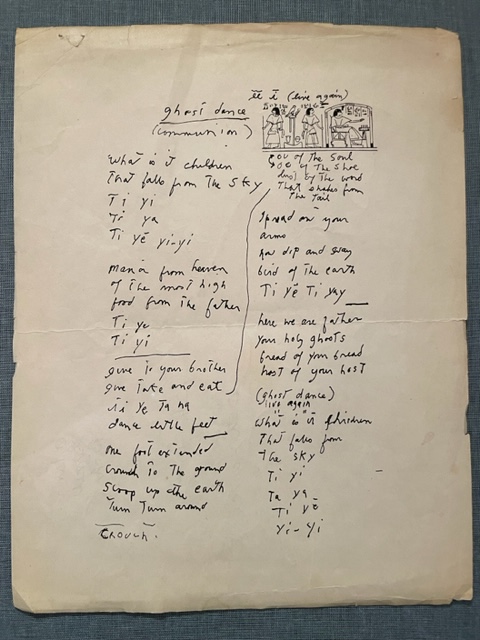 ghost dance
(communion)
what is it children
that falls from the sky
Ti yi
Ti ya
Ti yē yi-yi
mana from heaven
of the most high
food from the father
Ti ye
Ti yi
give to your brother
give take and eat
Ti ye Ta na
dance little feet
one foot extended
crouch to the ground
scoop up the earth
Turn Turn around
CROUCH.
(live again)
of the Soul
of the Shoe
dust by the word
That shakes from
the Tail
Spread on your
arms
now dip and sway
bird of the earth
Ti Yē Ti yay
here we are father
your holy ghosts
bread of your bread
host of your host
(ghost dance)
live again
what is it children
That falls from
The sky
Ti yi
Ta ya
Ti yē
Yi-Yi